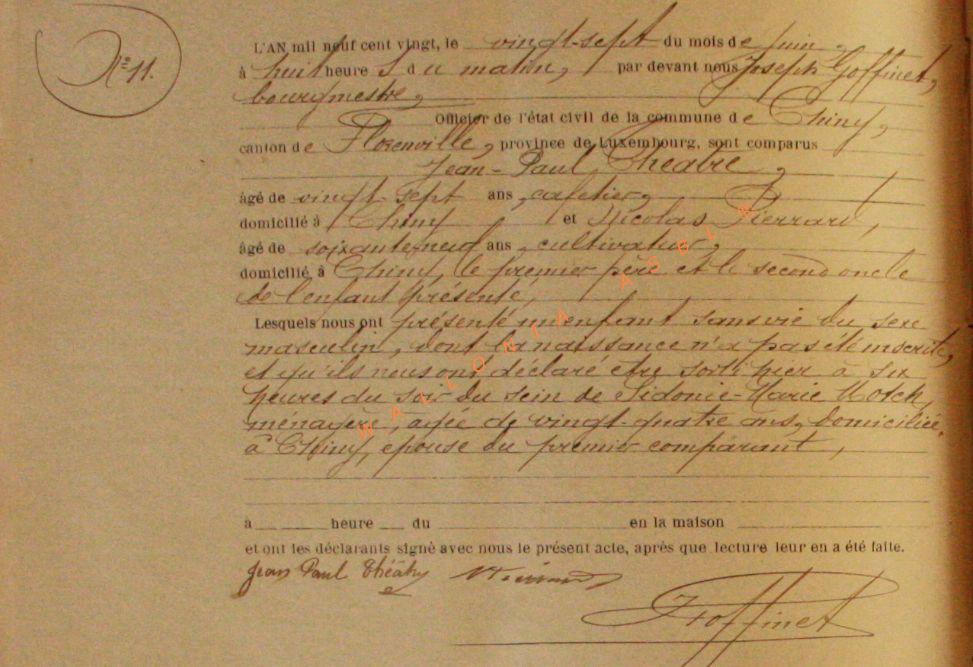 N° 11.
L'AN mil neuf cent vingt, le vingt-sept du mois de juin,
à huit heure s du matin, par devant nous Joseph Goffinet,
bourgmestre,
Officier de l'état civil de la commune de Chiny,
canton de Florenville, province de Luxembourg, sont comparus
Jean-Paul Théâtre,
âgé de vingt sept ans, cafetier,
domicilié à Chiny et Nicolas Pierrard,
âgé de soixante-neuf ans, cultivateur,
domicilié à Chiny, le premier père et le second oncle
de l'enfant présenté,
Lesquels nous ont présenté un enfant sans vie du sexe
masculin, dont la naissance n'a pas été inscrite,
et qu'ils nous ont déclaré être sorti hier à six
heures du soir du sein de Sidonie-Marie Motch,
ménagère, agée de vingt-quatre ans, domiciliée
à Chiny, épouse du premier comparant,
à heure du en la maison
et ont les déclarants signé avec nous le présent acte, après que lecture leur en a été faite.
Jean Paul Théâtre
Goffinet